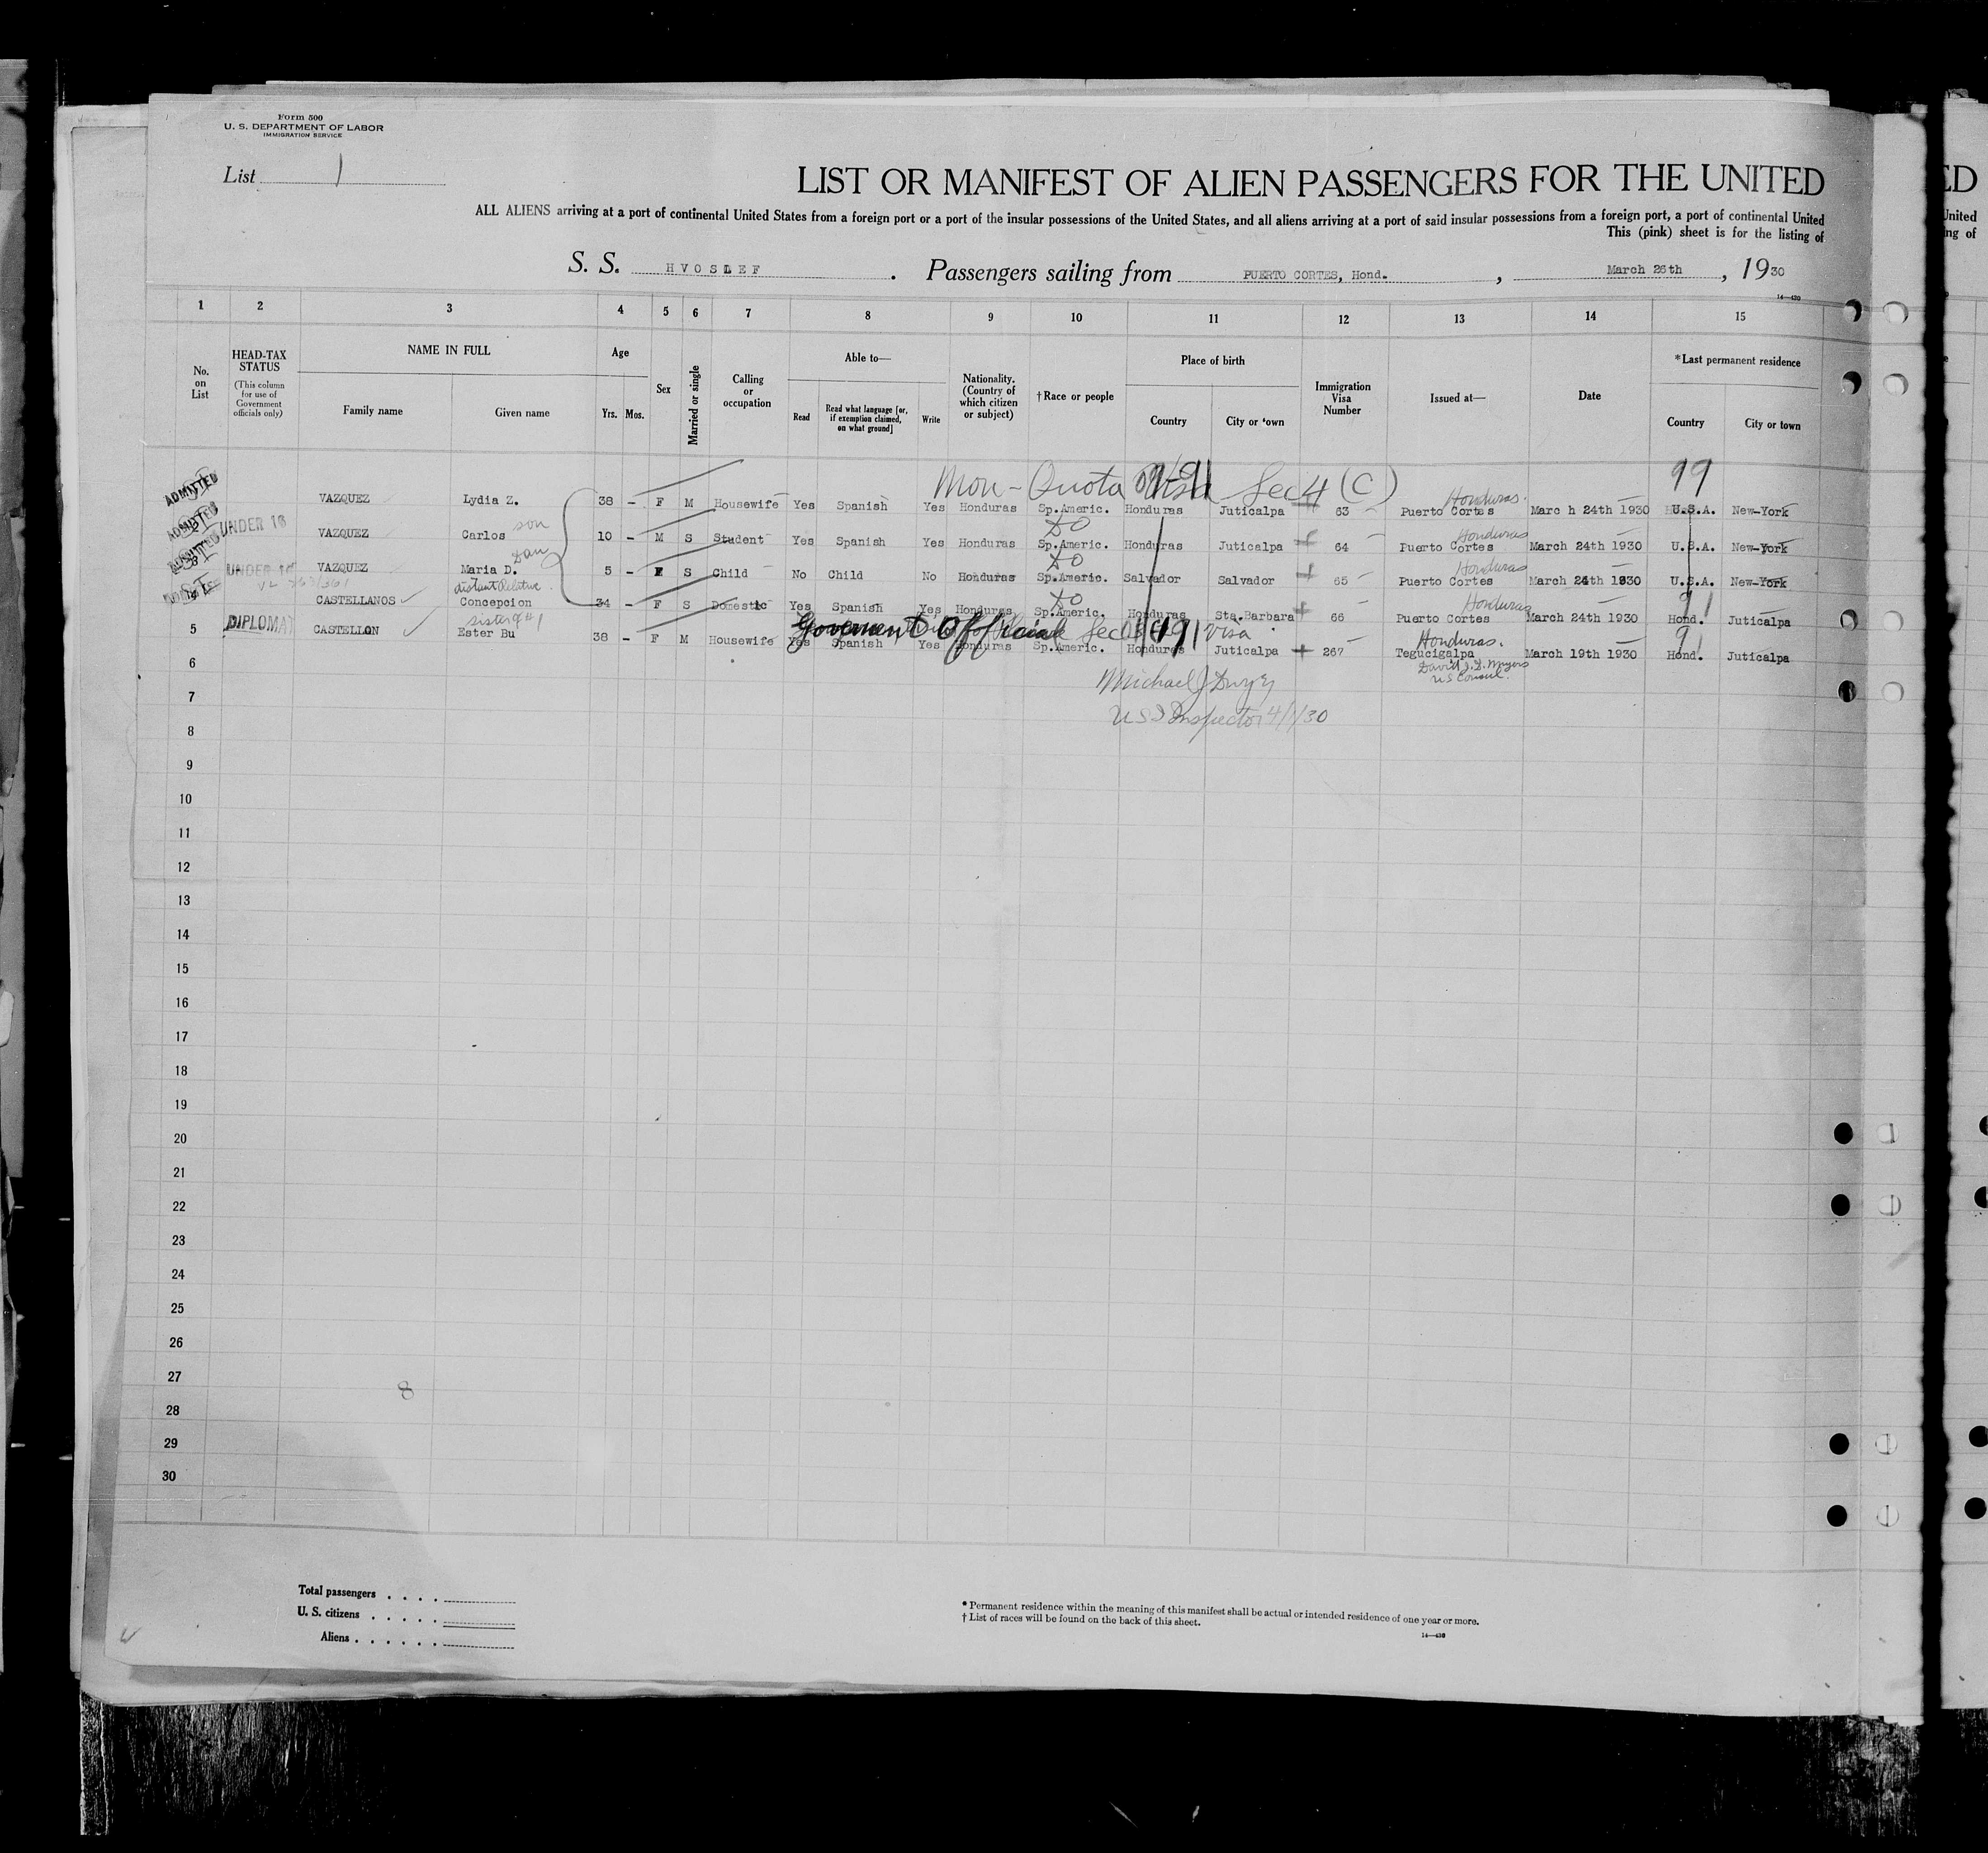 Form 500
U. S. DEPARTMENT OF LABOR
IMMIGRATION SERVICE
List 1
LIST OR MANIFEST OF ALIEN PASSENGERS FOR THE UNITED
ALL ALIENS arriving at a port of continental United States from a foreign port or a port of the insular possessions of the United States, and all aliens arriving at a port of said insular possessions from a foreign port, a port of continental United
This (pink) sheet is for the listing of
S. S. HVOSLEF. Passengers sailing from PUERTO CORTES, Hond., March 26th, 1930
14—430
1 2 3 4 5 6 7 8 9 10 11 12 13 14 15
No. on List
HEAD-TAX STATUS (This column for use of Government officials only)
NAME IN FULL
Family name Given name
Age
Yrs. Mos.
Sex
Married or single
Calling or occupation
Able to—
Read Read what language [or, if exemption claimed, on what ground] Write
Nationality. (Country of which citizen or subject)
†Race or people
Place of birth
Country City or town
Immigration Visa Number
Issued at—
Date
*Last permanent residence
Country City or town
Non-Quota Visa Sec 4 (C) 99
ADMITTED VAZQUEZ Lydia Z. 38 – F M Housewife Yes Spanish Yes Honduras Sp.Americ. Honduras Juticalpa 63 Puerto Cortes Honduras. Marc h 24th 1930 U.S.A. New-York
ADMITTED UNDER 16 VAZQUEZ Carlos son 10 – M S Student Yes Spanish Yes Honduras Do Sp.Americ. Honduras Juticalpa 64 Puerto Cortes Honduras March 24th 1930 U.S.A. New-York
ADMITTED UNDER 16 VAZQUEZ Maria D. Dau 5 – F S Child No Child No Honduras Do Sp.Americ. Salvador Salvador 65 Puerto Cortes Honduras March 24th 1930 U.S.A. New-York
CASTELLANOS distant Relative Concepcion 34 – F S Domestic Yes Spanish Yes Honduras Do Sp.Americ. Honduras Sta.Barbara 66 Puerto Cortes Honduras March 24th 1930 Hond. Juticalpa
Goverment Official Sec Visa
5 DIPLOMAT CASTELLON sister of #1 Ester Bu 38 – F M Housewife Yes Spanish Yes Honduras Sp.Americ. Honduras Juticalpa 267 Honduras. Tegucigalpa March 19th 1930 Hond. Juticalpa
David J. D. Myers
US Consul.
6
Michael J Dwyer
7
U S I Inspector 4/1/30
8
9
10
11
12
13
14
15
16
17
18
19
20
21
22
23
24
25
26
27
8
28
29
30
Total passengers . . . .
U. S. citizens . . . . .
Aliens . . . . . .
* Permanent residence within the meaning of this manifest shall be actual or intended residence of one year or more.
† List of races will be found on the back of this sheet.
14—430
ED
United
ing of